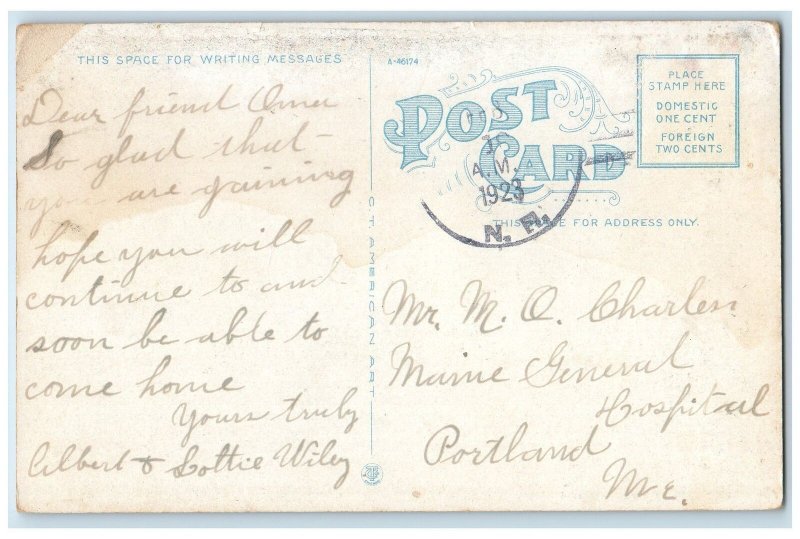 THIS SPACE FOR WRITING MESSAGES
Dear friend Omer
So glad that
you are gaining
hope you will
continue to and
soon be able to
come home
Yours truly
Albert & Lottie Wiley
C.T. AMERICAN ART
A-46174
POST
CARD
PLACE
STAMP HERE
DOMESTIC
ONE CENT
FOREIGN
TWO CENTS
A.M.
1923
N. H.
THIS SPACE FOR ADDRESS ONLY.
Mr. M. O. Charles
Maine General
Hospital
Portland
Me.